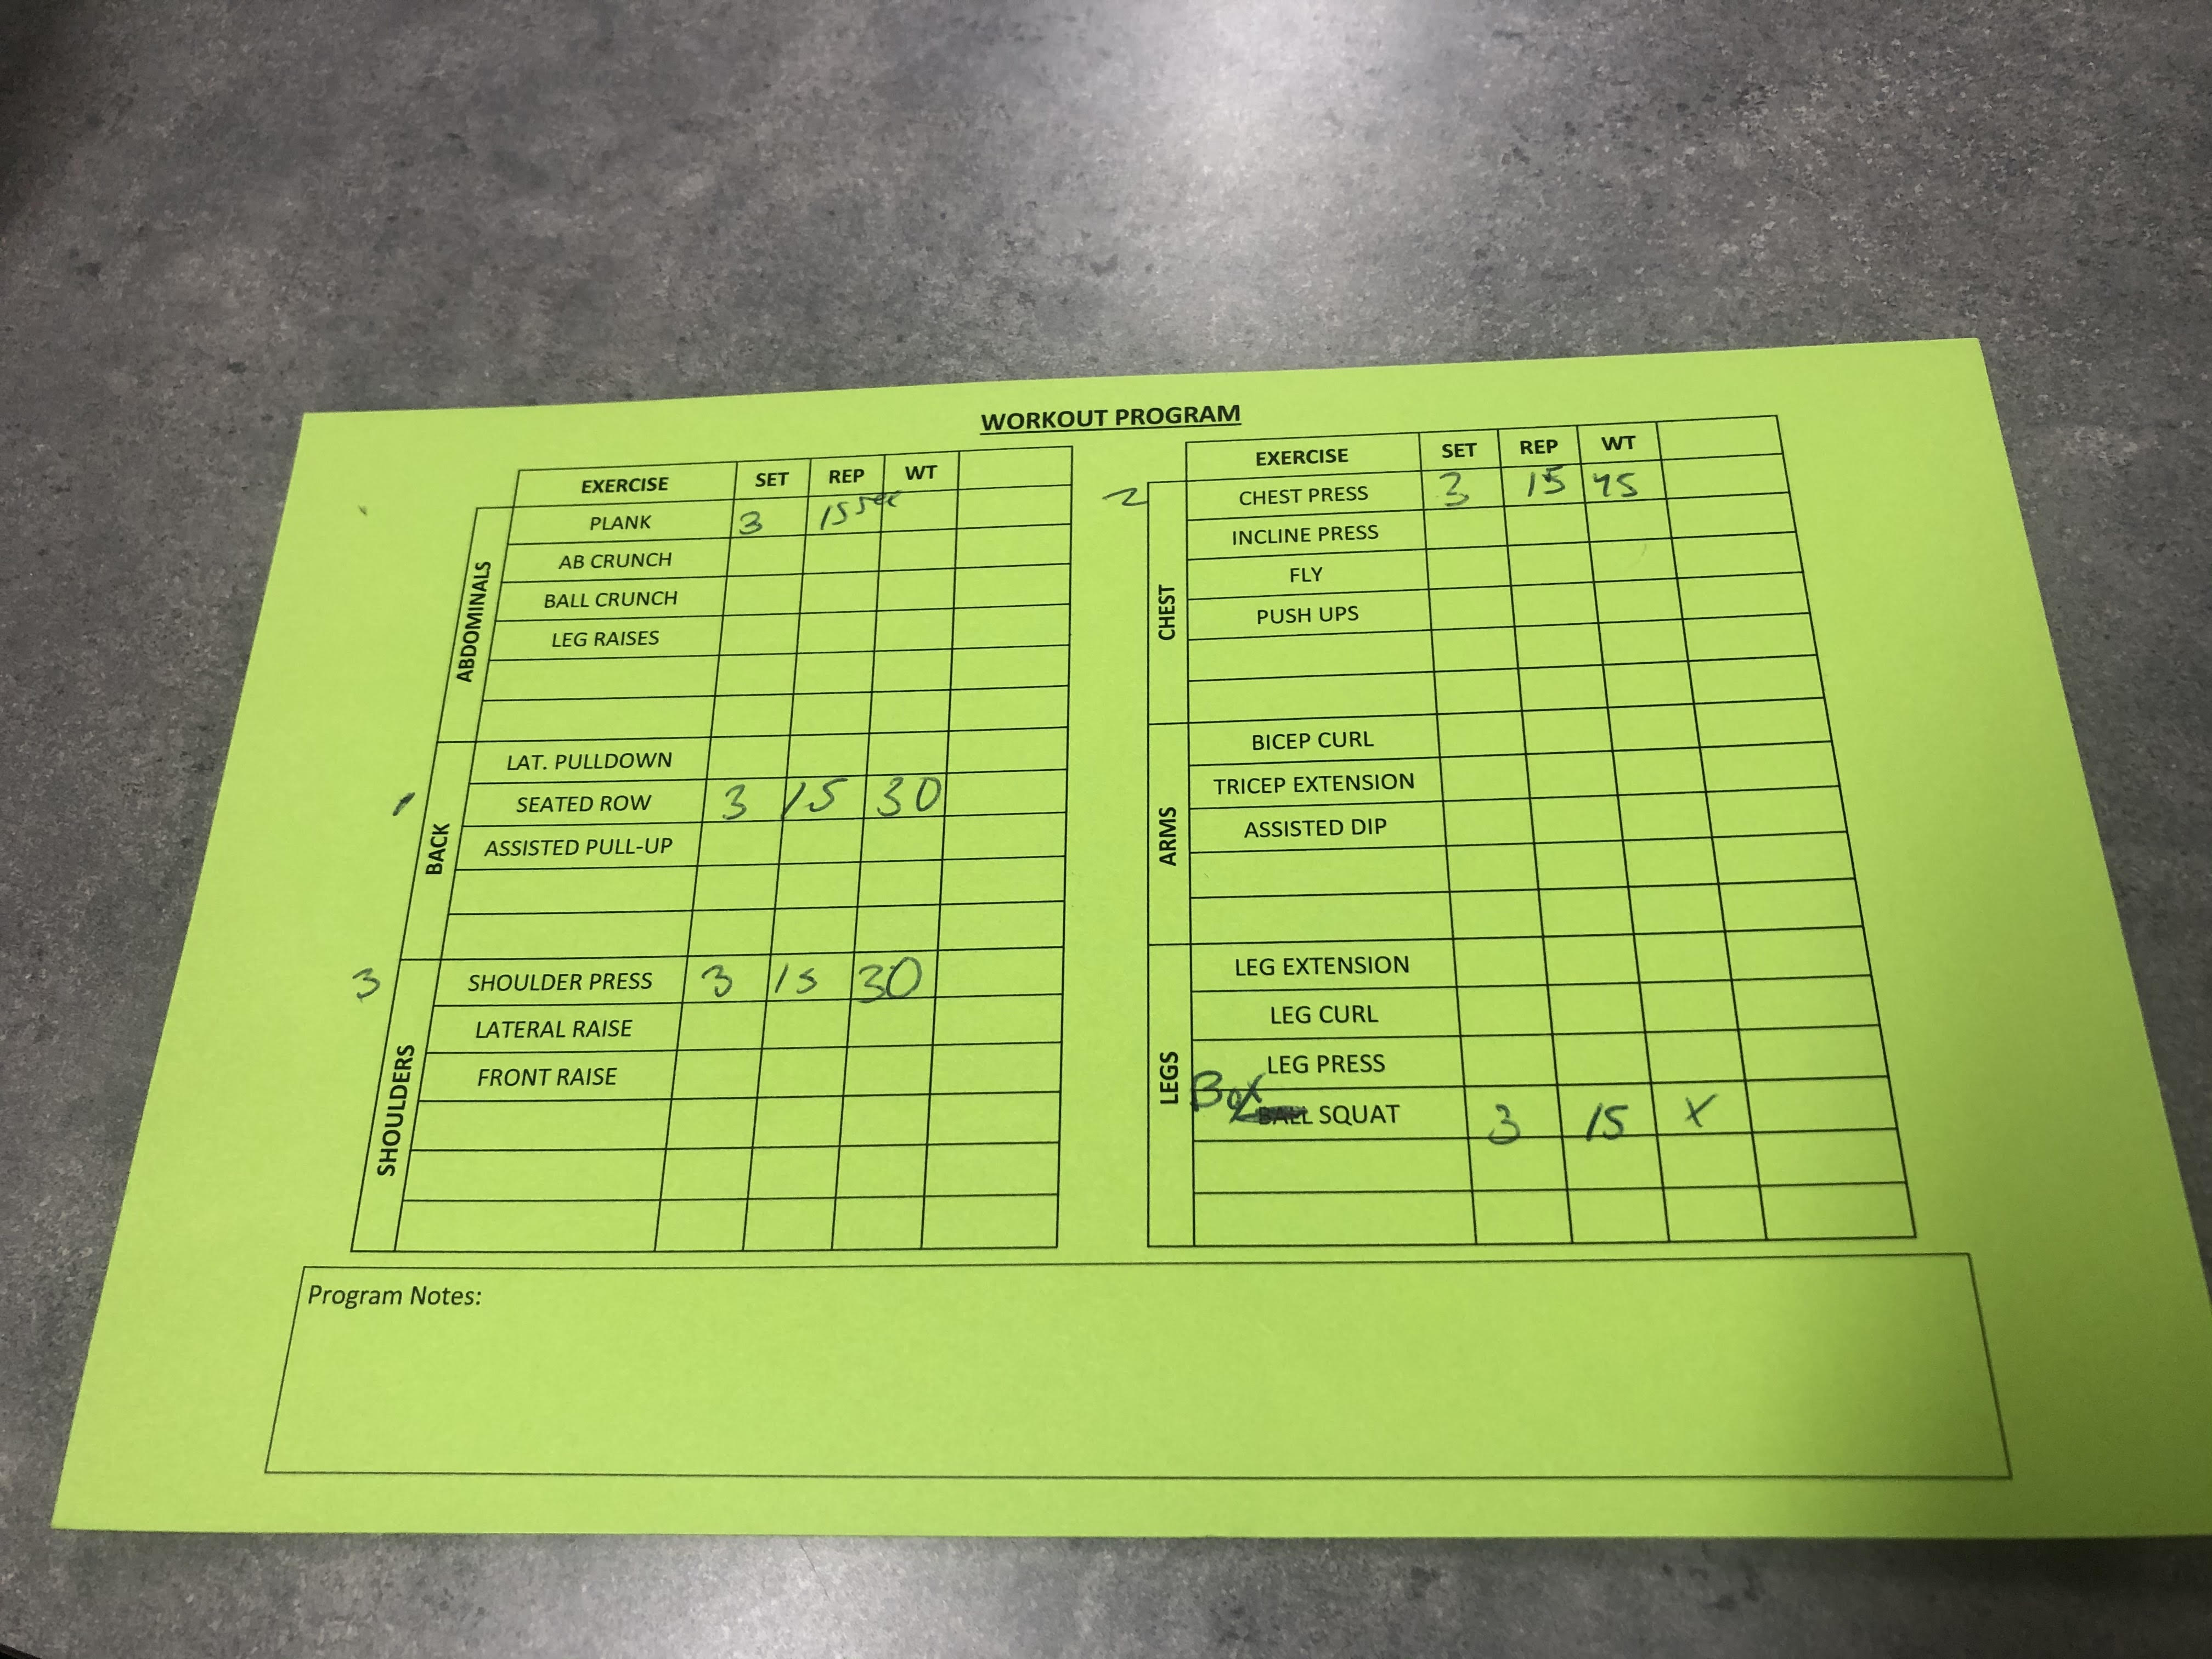 WORKOUT PROGRAM
EXERCISE SET REP WT
ABDOMINALS
PLANK 3 15 sec
AB CRUNCH
BALL CRUNCH
LEG RAISES
BACK
LAT. PULLDOWN
1 SEATED ROW 3 15 30
ASSISTED PULL-UP
SHOULDERS
3 SHOULDER PRESS 3 15 30
LATERAL RAISE
FRONT RAISE
EXERCISE SET REP WT
CHEST
2 CHEST PRESS 3 15 45
INCLINE PRESS
FLY
PUSH UPS
ARMS
BICEP CURL
TRICEP EXTENSION
ASSISTED DIP
LEGS
LEG EXTENSION
LEG CURL
LEG PRESS
Box BALL SQUAT 3 15 X
Program Notes: